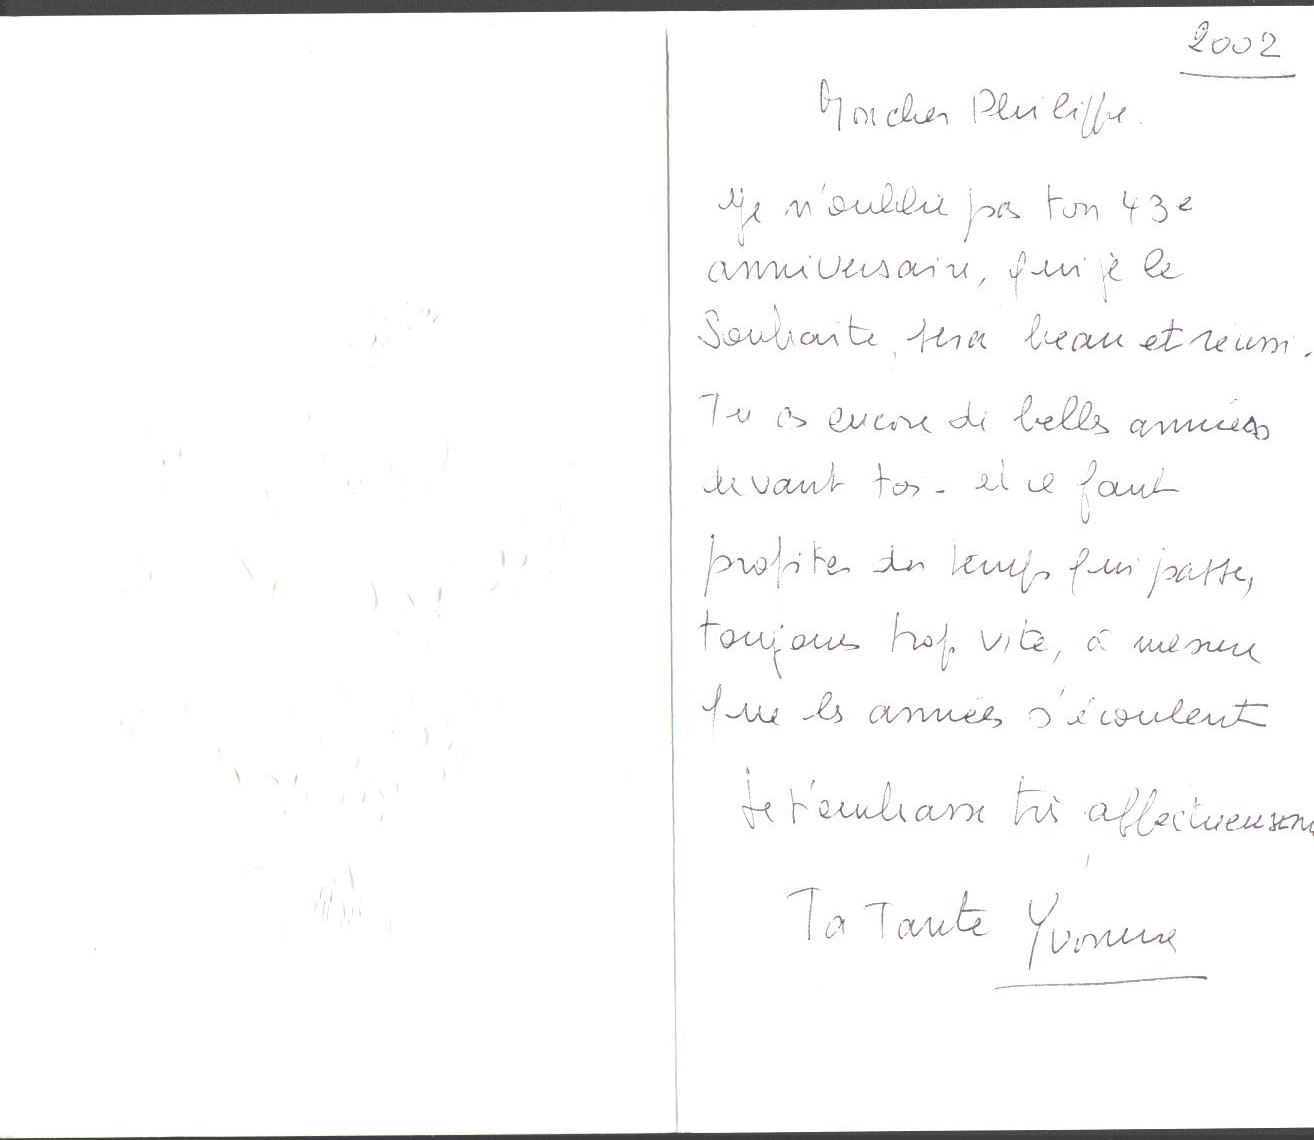 2002
Mon cher Philippe.
Je n'oublie pas ton 43e
anniversaire, qui je le
Souhaite, sera beau et réussi.
Tu as encore de belles années
devant toi - et il faut
profiter du temps qui passe,
toujours trop vite, à mesure
que les années s'écoulent
Je t'embrasse très affectueusem
Ta Tante Yvonne